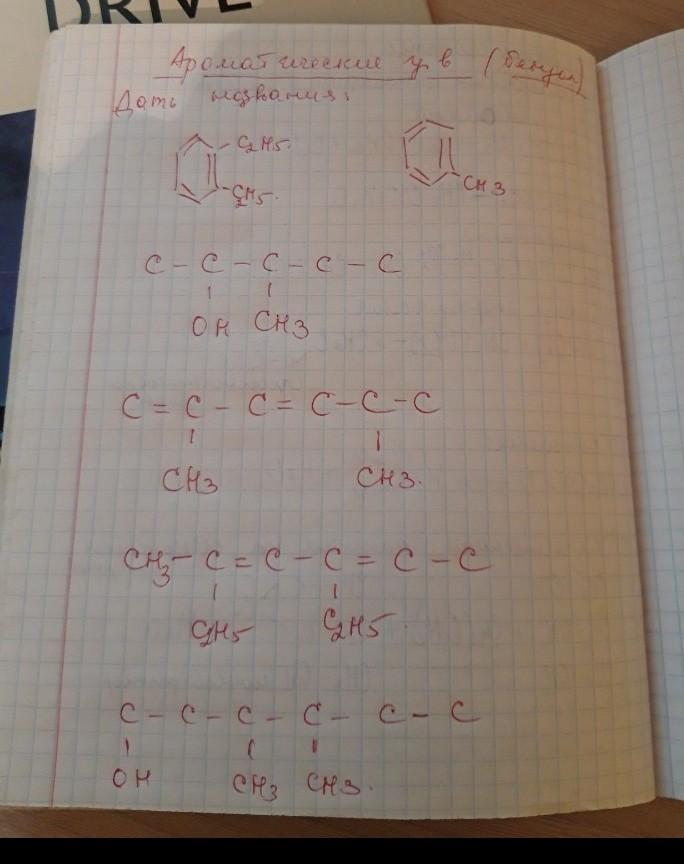 DRIVE
Ароматические ув (бензол)
Дать названия:
C2H5.
C2H5.
CH3.
C - C - C - C - C
OH CH3
C = C - C = C - C - C
CH3 CH3.
CH3 - C = C - C = C - C
C2H5 C2H5.
C - C - C - C - C - C
OH CH3 CH3.